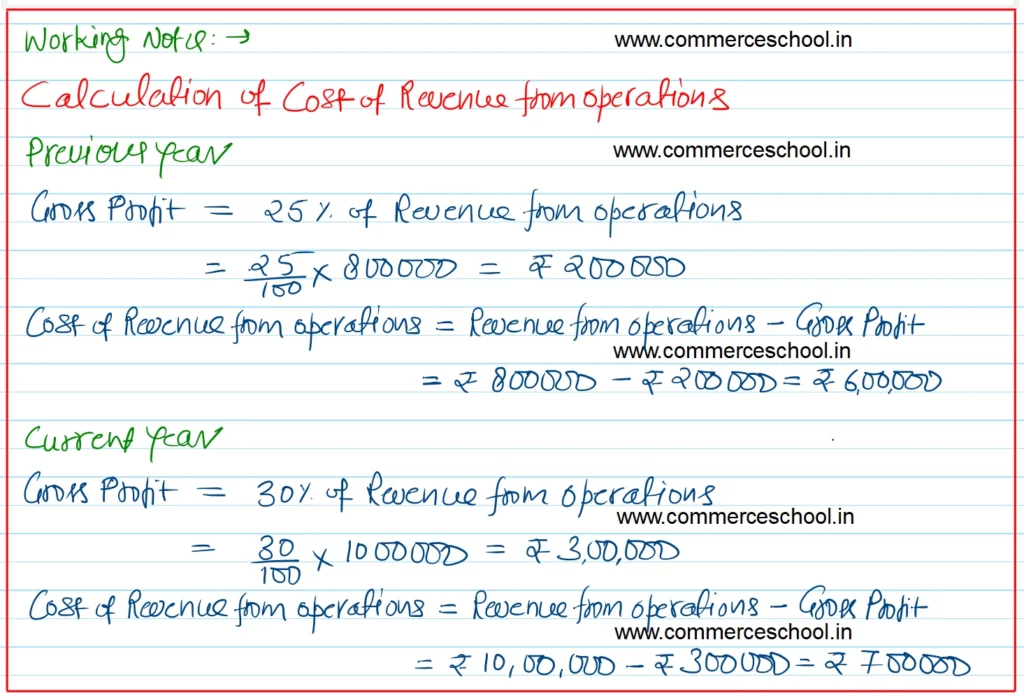 Working Note: →
www.commerceschool.in
Calculation of Cost of Revenue from operations
Previous year
www.commerceschool.in
Gross Profit = 25 % of Revenue from operations
= 25/100 × 800000 = ₹ 200000
Cost of Revenue from operations = Revenue from operations – Gross Profit
www.commerceschool.in
= ₹ 800000 – ₹ 200000 = ₹ 6,00,000
Current year
Gross Profit = 30% of Revenue from operations
www.commerceschool.in
= 30/100 × 1000000 = ₹ 3,00,000
Cost of Revenue from operations = Revenue from operations – Gross Profit
www.commerceschool.in
= ₹ 10,00,000 – ₹ 300000 = ₹ 700000